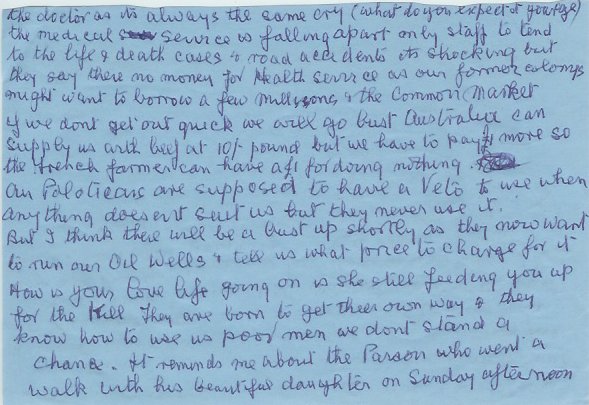 the doctor as its always the same cry (what do you expect at your age)
the medical service is falling apart only staff to tend
to the life & death cases & road accidents its shocking but
they say there no money for Health service as our former colonys
might want to borrow a few millions & the Common Market
if we dont get out quick we will go bust Australia can
supply us with beef at 10/- pound but we have to pay more so
the French farmer can have a for doing nothing
Our Poloticans are supposed to have a Veto to use when
any thing doesent suit us but they never use it.
But I think there will be a bust up shortly as they now want
to run our Oil Wells & tell us what price to charge for it
How is your love life going on is she still feeding you up
for the kill They are born to get their own way & they
know how to use us poor men we dont stand a
Chance. It reminds me about the Parson who went a
walk with his beautiful daughter on Sunday afternoon